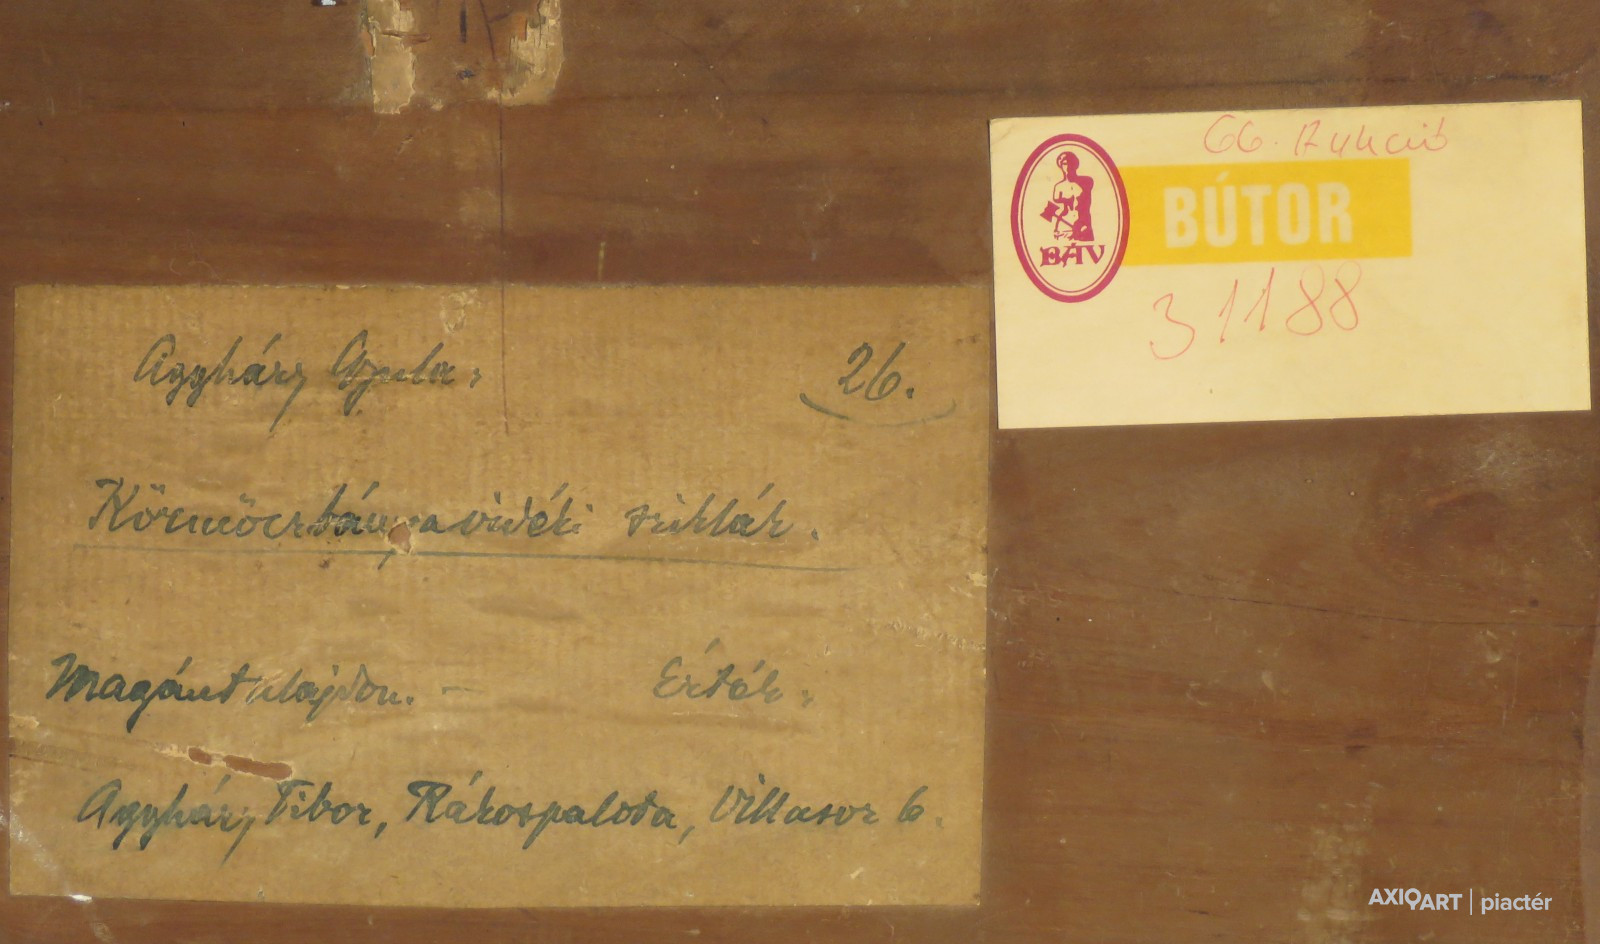 Aggházy Gyula.
26.
Körmöczbánya vidéki sziklák.
Magántulajdon. — Érték.
Aggházy Tibor, Rákospalota, Villasor 6.
66. Aukció
BÚTOR
BÁV
31188
AXIOART | piactér